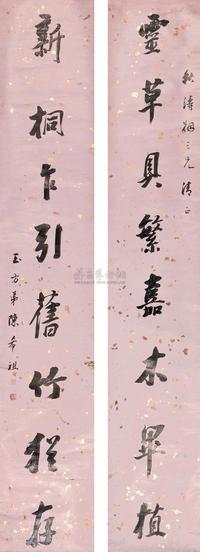 靈草具繁嘉木畢植
三兄清正
新桐乍引舊竹猶存
玉方弟陳希祖